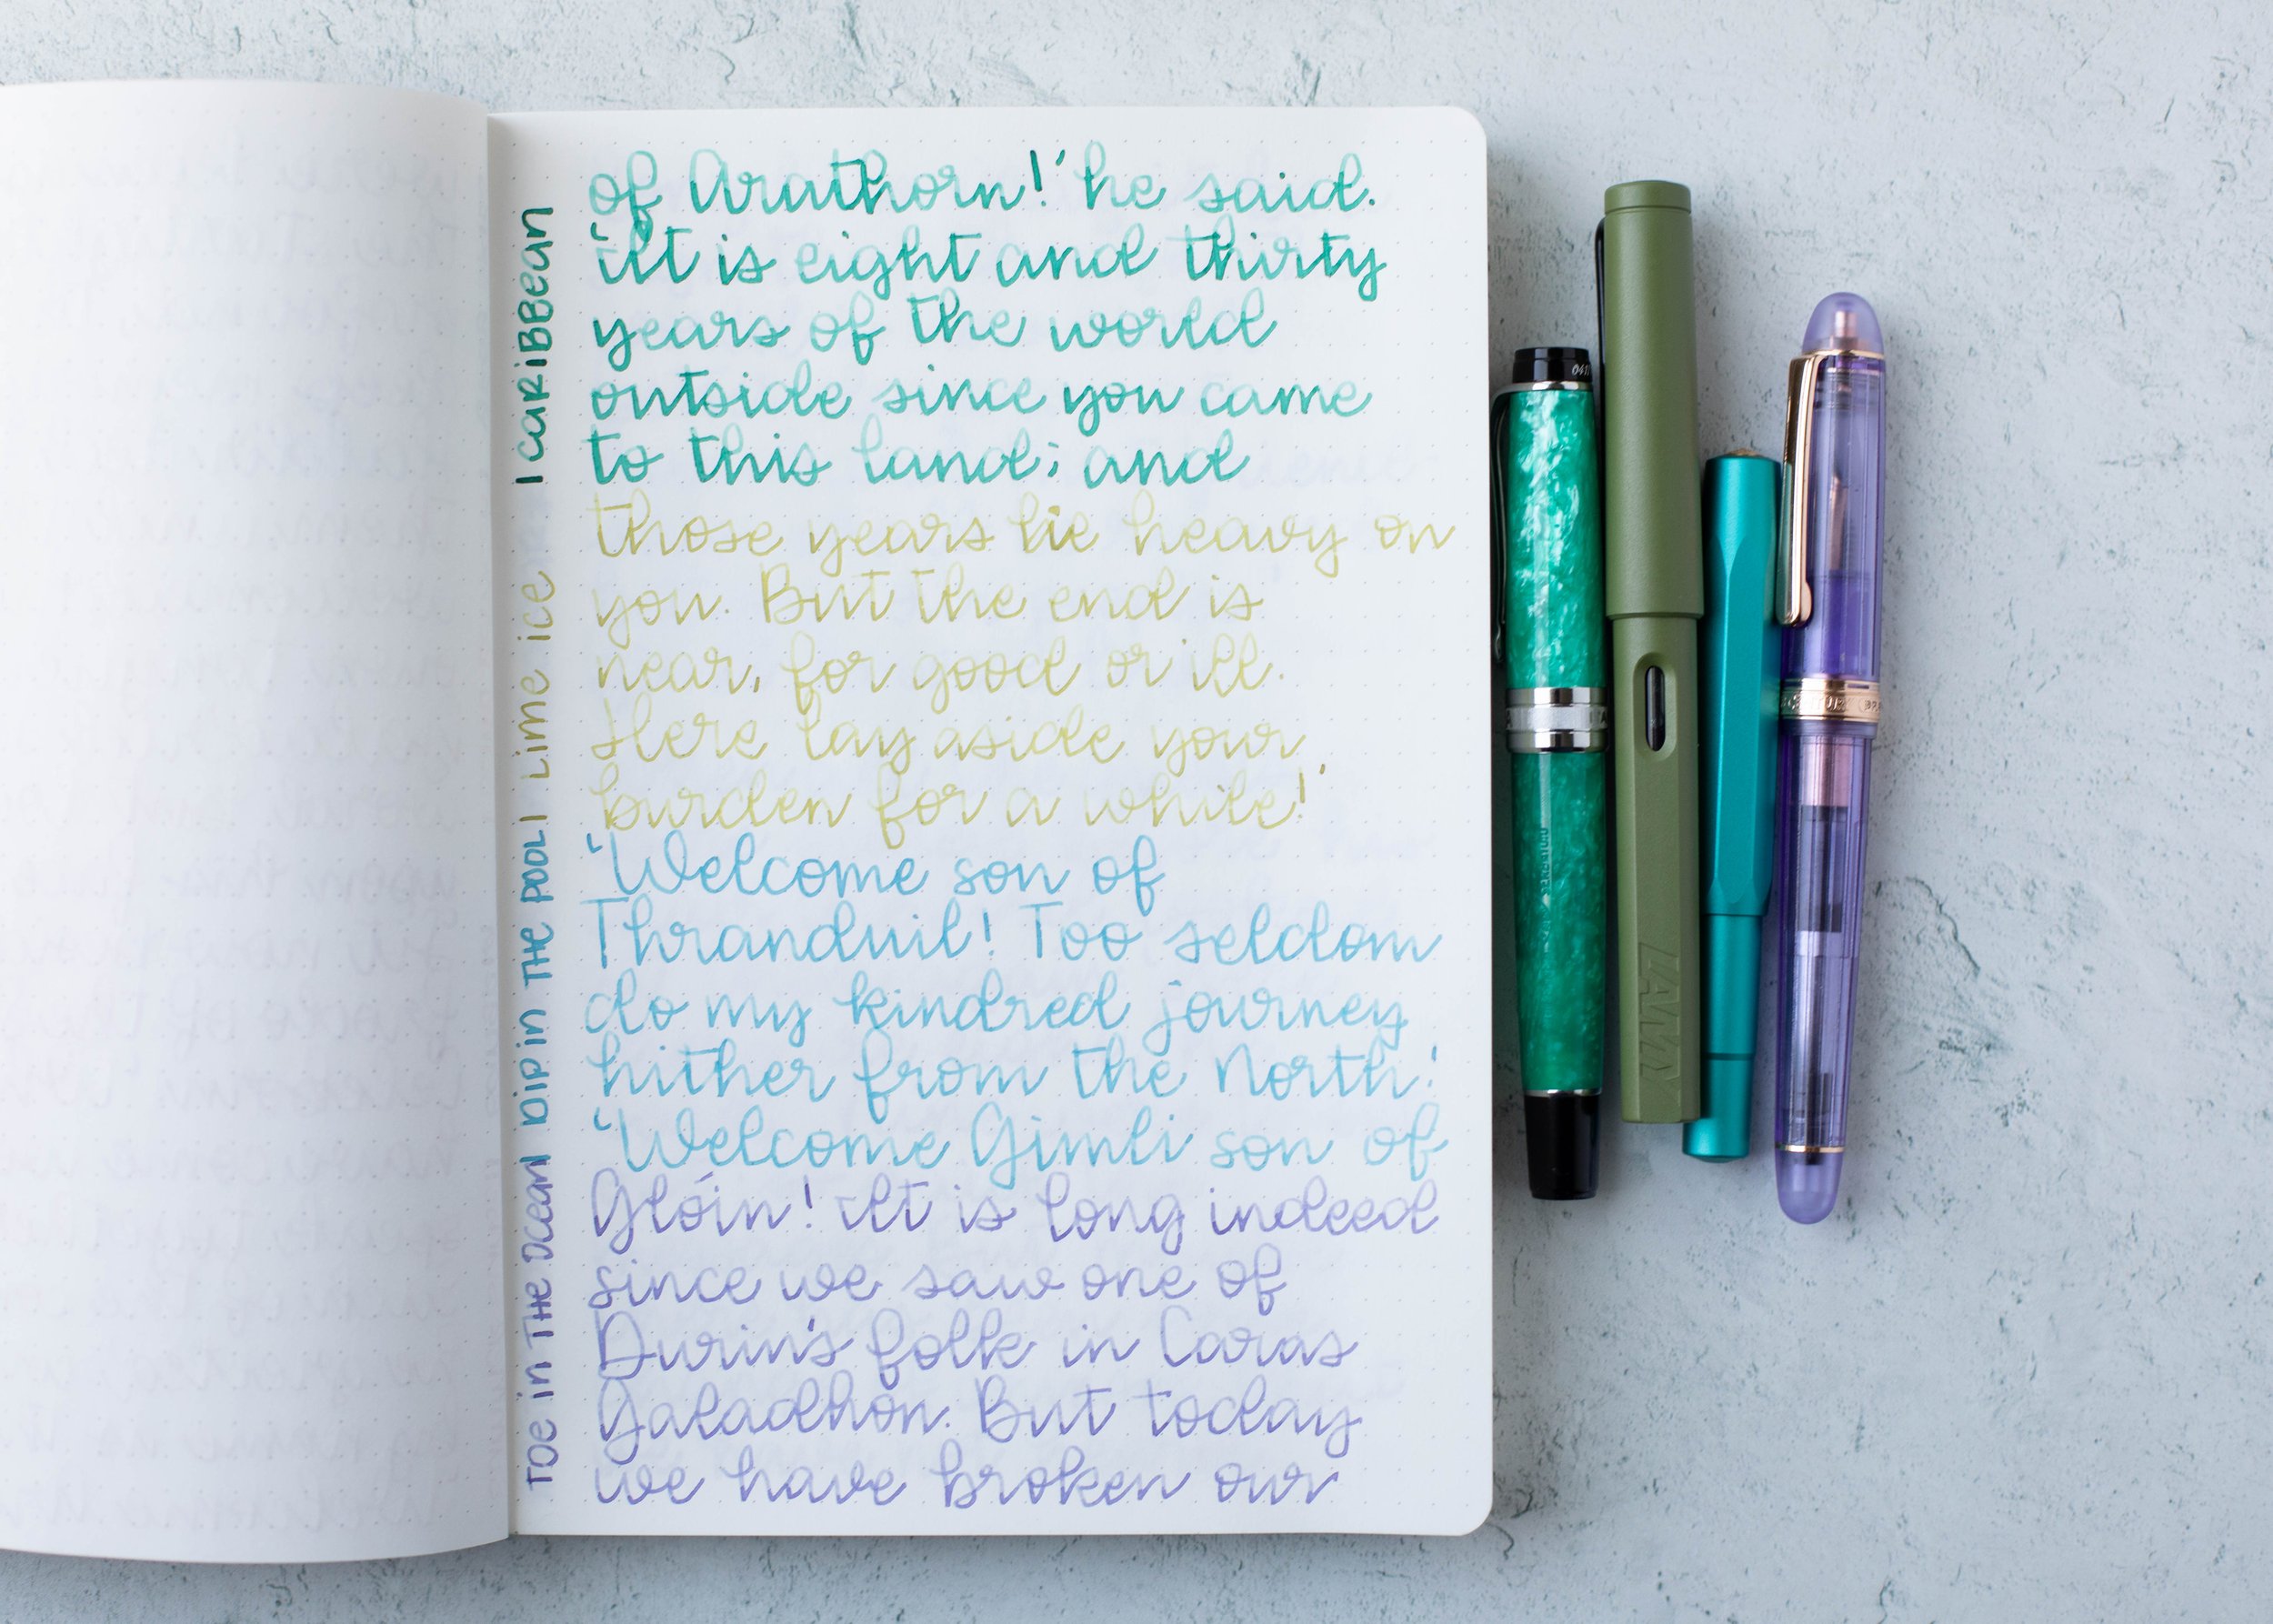 of Arathorn!' he said.
'It is eight and thirty
years of the world
outside since you came
to this land; and
those years lie heavy on
you. But the end is
near, for good or ill.
Here lay aside your
burden for a while!'
'Welcome son of
Thranduil! Too seldom
do my kindred journey
hither from the North.'
'Welcome Gimli son of
Glóin! It is long indeed
since we saw one of
Durin's folk in Caras
Galadhon. But today
we have broken our
TOE in THE OCEAN | DIP in THE POOL | LIME ICE | CARIBBEAN
LAMY